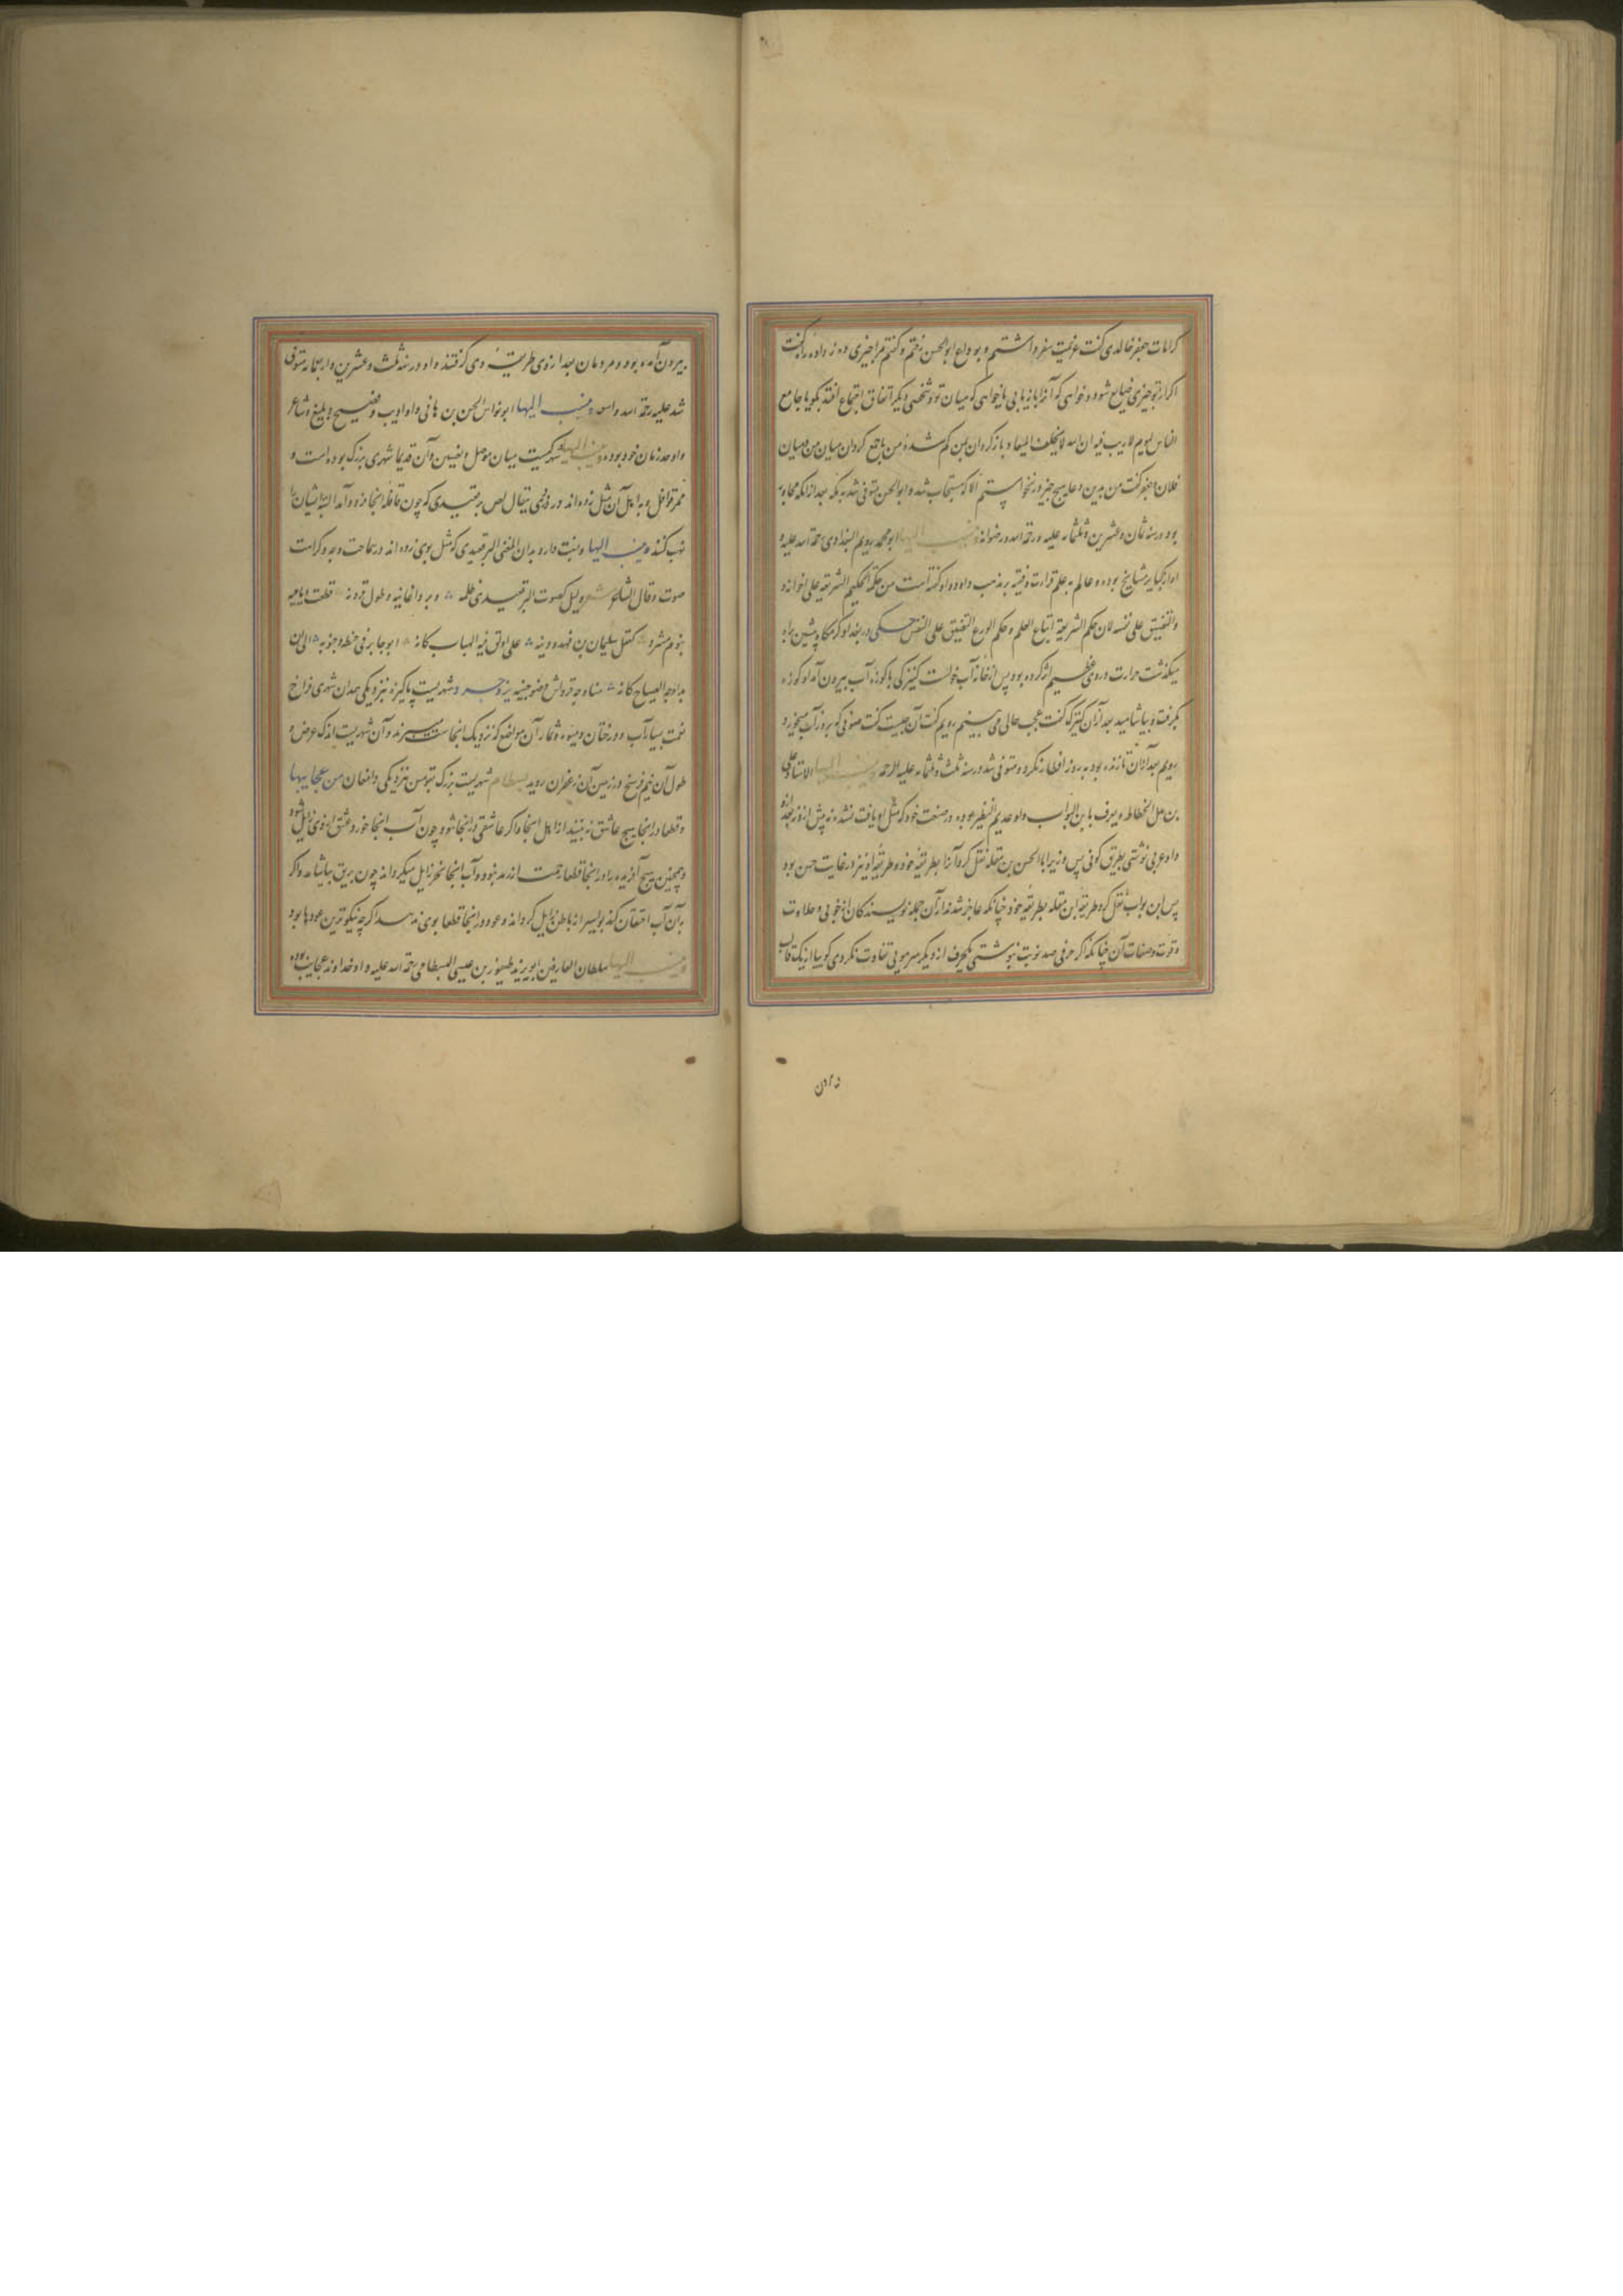 کرامات جعفر خالدی گفت عزیمت سفر داشتم و بوداع ابو الحسن رفتم و گفتم مرا چیزی ده زواده راه گفت
اگر از تو چیزی ضایع شود و خواهی که آنرا باز یابی یا خواهی که میان تو و شخصی دیگر اتفاق اجتماع افتد بگو یا جامع
الناس لیوم لا ریب فیه ان الله لا یخلف المیعاد باز گردان بمن گم شده من یا جمع گردان میان من و میان
فلان جعفر گفت من بدین دعا هیچ چیز در نخواستم الا که مستجاب شد و ابو الحسن متوفی شد بمکه بعد از آنکه مجاور
بود در سنه ثمان و عشرین و ثلثمائه علیه رحمة الله و رضوانه وینسب الیها ابو محمد رویم البغدادی رحمة الله علیه و
او از کبایر مشایخ بوده و عالم به علم قرات و فقیه بر مذهب داود و او گفته است من حکم الحکیم الشریعة علی اخوانه و
والتضییق علی نفسه لان حکم الشریعة اتباع العلم و حکم الورع التضییق علی النفس حکی در بغداد گرمگاه پیشین براه
میگذشت حرارت در وی عظیم اثر کرده بود پس از خانه آب خواست کنیزکی با کوزه آب بیرون آمد او کوزه
بگرفت و بیاشامید بعد از آن کنیزک گفت عجب حالی می بینم رویم گفت آن چیست گفت صوفی که بروز آب میخورد
رویم بعد از آن تا زنده بود بروز افطار نکرد و متوفی شد در سنه ثلث و ثلثمائه علیه الرحمه وینسب الیها الاستاد علی
بن هلال الخطاط و یعرف بابن البواب و او عدیم النظیر بوده در صنعت خود که مثل او یافت نشد نه پیش از و نه بعد ازو
و او عربی نوشتی بطریق کوفی پس وزیر ابا الحسن بن مقله نقل کرد آنرا بطریقه خود و طریقه او نیز در غایت حسن بود
پس ابن بواب نقل کرد طریقه ابن مقله بطریقه خود چنانکه عاجز شدند از آن جمله نویسندگان از خوبی و حلاوت
و قوت و صفات آن چنانکه اگر حرفی صد نوبت بنوشتی یکحرف از دیگر سر مویی تفاوت نکردی گوییا از یک قالب
بیرون آمده بود و مردمان بعد از وی طریقه وی گرفتند و او در سنه ثلث و عشرین و اربعمائه متوفی
شد علیه رحمة الله واسعه وینسب الیها ابو نواس الحسن بن هانی و او ادیب و فصیح و بلیغ و شاعر
و اوحد زمان خود بوده شهرکیست میان موصل و نصیبین و آن قدیما شهری بزرگ بوده است و
ممر قوافل و به اهل آن مثل زده اند در دزدی یقال لص برقعیدی که چون قافله آنجا فرود آمد البته ایشان را
نهب کنند وینسب الیها و نسبت دارد بدان المغنی البرقعیدی که مثل بوی زده اند در سماجت وجه و کراهت
صوت و قال الشاعر شعر و لیل کصوت البرقعیدی ظلمه و برد اغانیه و طول قرونه قطعت دیاجیه
بنوم مشرد کعقل سلیمان بن فهد و دینه علی اولق فیه الهباب کانه ابو جابر فی خطبه و جنونه الی ان
بدا وجه الصباح کانه سناه وجه قرواش و ضوء جبینه بروجرد شهریست پاکیزه نزدیکی همدان شهری فراخ
نعمت بسیار آب و درختان و میوه و ثمار آن بمواضع که نزدیک آنجاست میبرند و آن شهریست اندک عرض و
طول آن نیم فرسخ و زمین آن زعفران روید بسطام شهریست بزرگ بقومس نزدیکی دامغان من عجایبها
و قطعا در آنجا هیچ عاشق نه بینند از اهل آنجا و اگر عاشقی در آنجا شود چون آب آنجا خورد عشق از وی زایل شود
و همچنین هیچ آفریده را در آنجا قطعا زحمت از رمد نبود و آب آنجا بخر زایل میگرداند چون بریق بیاشامد و اگر
بدان آب احتقان کند بواسیر از باطن زایل گرداند و عود در آنجا قطعا بوی ندهد اگر چه نیکوترین عودها بود
وینسب الیها سلطان العارفین ابو یزید طیفور بن عیسی البسطامی رحمة الله علیه و او خداوند عجایب بوده